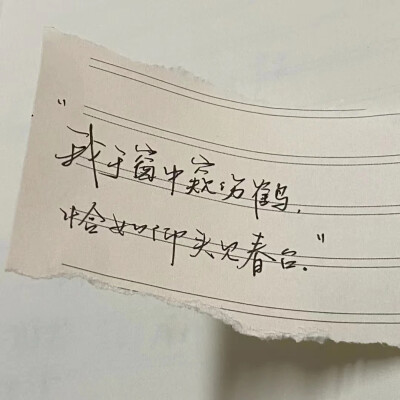 "我于窗中窥伤鹤.
恰如仰头见春台."